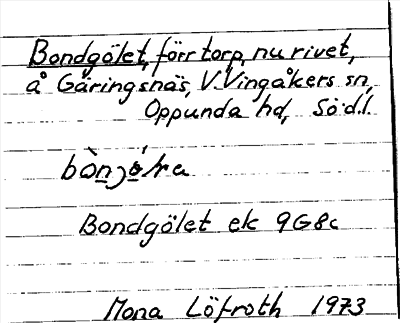 Bondgölet, förr torp, nu rivet,
å Gåringsnäs, V. Vingåkers sn,
Oppunda hd, Söd.l.
Bondgölet ek 9G8c
Mona Löfroth 1973